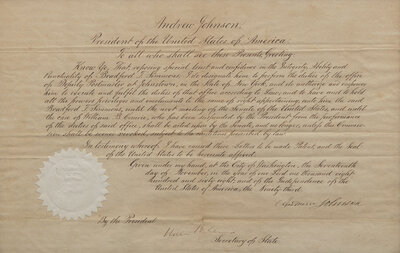 Andrew Johnson,
President of the United States of America
To all who shall see these Presents, Greeting:
Know Ye, That reposing special trust and confidence in the Integrity, Ability and
Punctuality of Bradford S. Simmons, I do designate him to perform the duties of the office
of Deputy Postmaster at Johnstown, in the State of New York, and do authorize and empower
him to execute and fulfil the duties of that office according to law; and to have and to hold
all the powers, privileges and emoluments to the same of right appertaining, unto him the said
Bradford S. Simmons, until the next meeting of the Senate of the United States, and until
the case of William B. who has been suspended by the President from the performance
of the duties of said office, shall be acted upon by the Senate, and no longer;
subject to the conditions prescribed by law.
In testimony whereof, I have caused these Letters to be made Patent and the Seal
of the United States to be hereunto affixed.
Given under my hand, at the City of Washington, the Seventeenth
day of November, in the year of our Lord one thousand eight
hundred and sixty eight, and of the Independence of the
United States of America, the Ninety third.
Andrew Johnson
By the President
Secretary of State